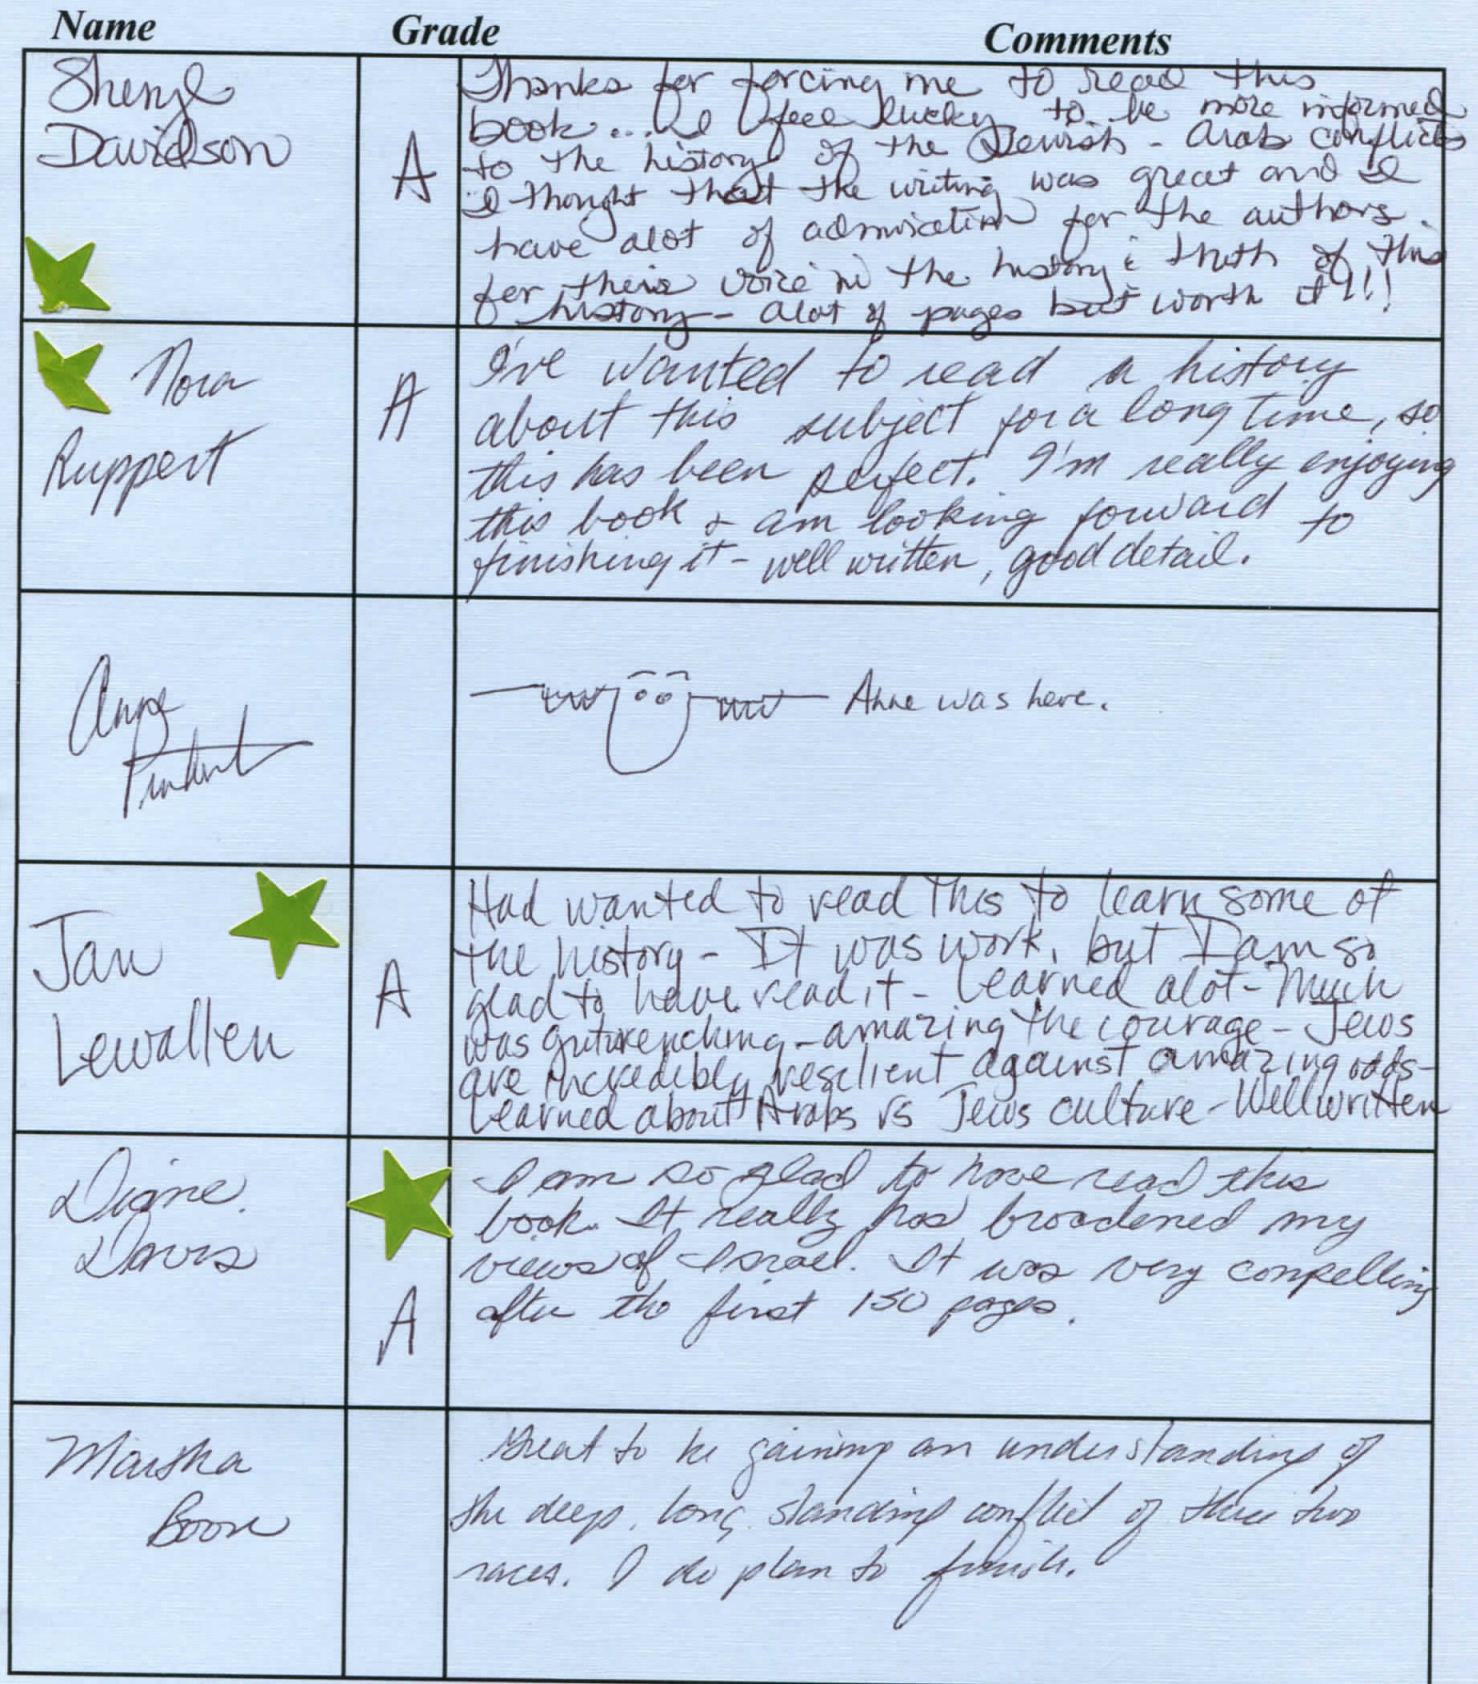 Name Grade Comments
Sheryl
Davidson
A
Thanks for forcing me to read this
book... I feel lucky to be more informed
to the history of the Jewish - Arab conflicts
I thought that the writing was great and I
have alot of admiration for the authors.
for their voice in the history & truth of this
history - Alot of pages but worth it!!!
Nora
Ruppert
A
I've wanted to read a history
about this subject for a long time, so
this has been perfect. I'm really enjoying
this book & am looking forward to
finishing it - well written, good detail.
Anne
Anne was here.
Jan
Lewallen
A
Had wanted to read this to learn some of
the history - It was work, but I am so
glad to have read it - Learned alot - Much
was gutwrenching - amazing the courage - Jews
are incredibly resilient against amazing odds -
Learned about Arabs vs Jews culture - Well written
Diane
Davis
A
I am so glad to have read this
book. It really has broadened my
views of Israel. It was very compelling
after the first 150 pages.
Marsha
Boon
Great to be gaining an understanding of
the deep, long standing conflict of these two
races. I do plan to finish.